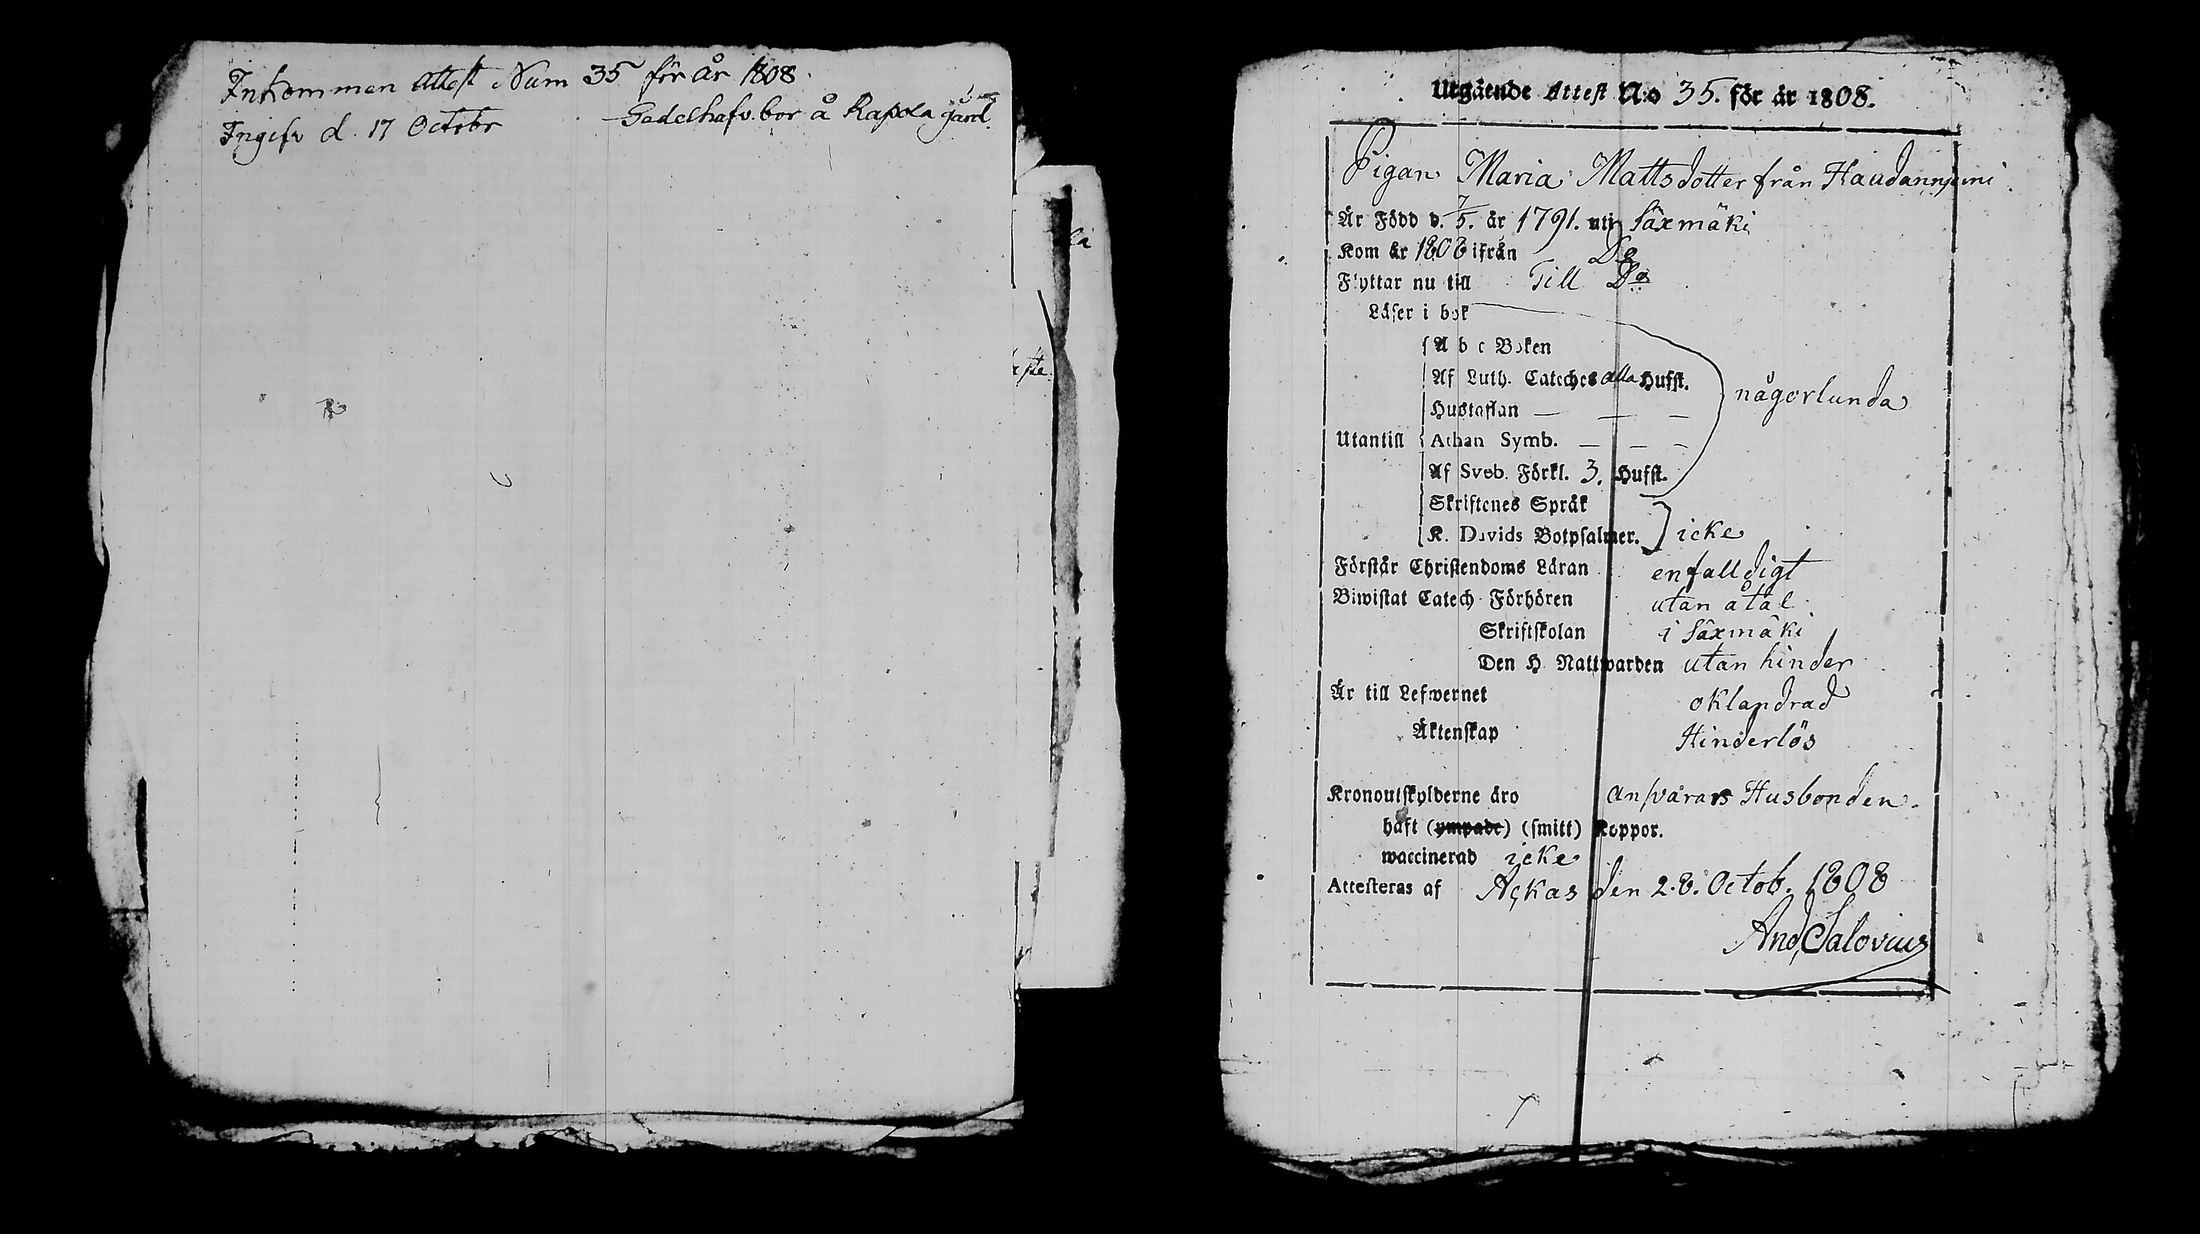 Inkommen attest Num 35 för år 1808.
Ingifv d. 17 Octobr bor å Rapola gård.
Utgående Attest N:o 35. för år 1808.
Pigan Maria Mattsdotter från Haudanniemi
Är Född d. 7/5. år 1791. uti Säxmäki
Kom år 1808 ifrån Do
Flyttar nu till Till Do
Läser i bok
A b c Boken
Af Luth. Cateches alla Hufst.
någorlunda
Hustaflan — — —
Utantill Athan Symb. — — —
Af Sveb. Förkl. 3. Hufst.
Skriftenes Språk
K. Davids Botpsalmer. icke
Förstår Christendoms Läran enfalldigt
Biwistat Catech Förhören utan åtal.
Skriftskolan i Säxmäki
Den H. Nattwarden utan hinder
Är till Lefwernet oklandrad
Äktenskap Hinderlös
Kronoutskylderne äro answarars Husbonden.
haft (ympade) (smitt) Koppor.
waccinerad icke
Attesteras af Ackas den 28. Octob. 1808
And Salovius